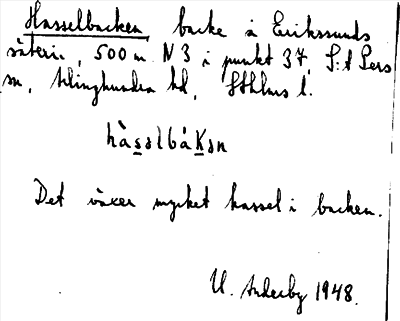 Hasselbacken backe å Erikssunds
säteri, 500 m N 3 i punkt 37, S:t Pers
sn, Ärlinghundra hd, Sthlms l.
hàsəlbákən
Det växer mycket hassel i backen.
U. Anderby 1948.